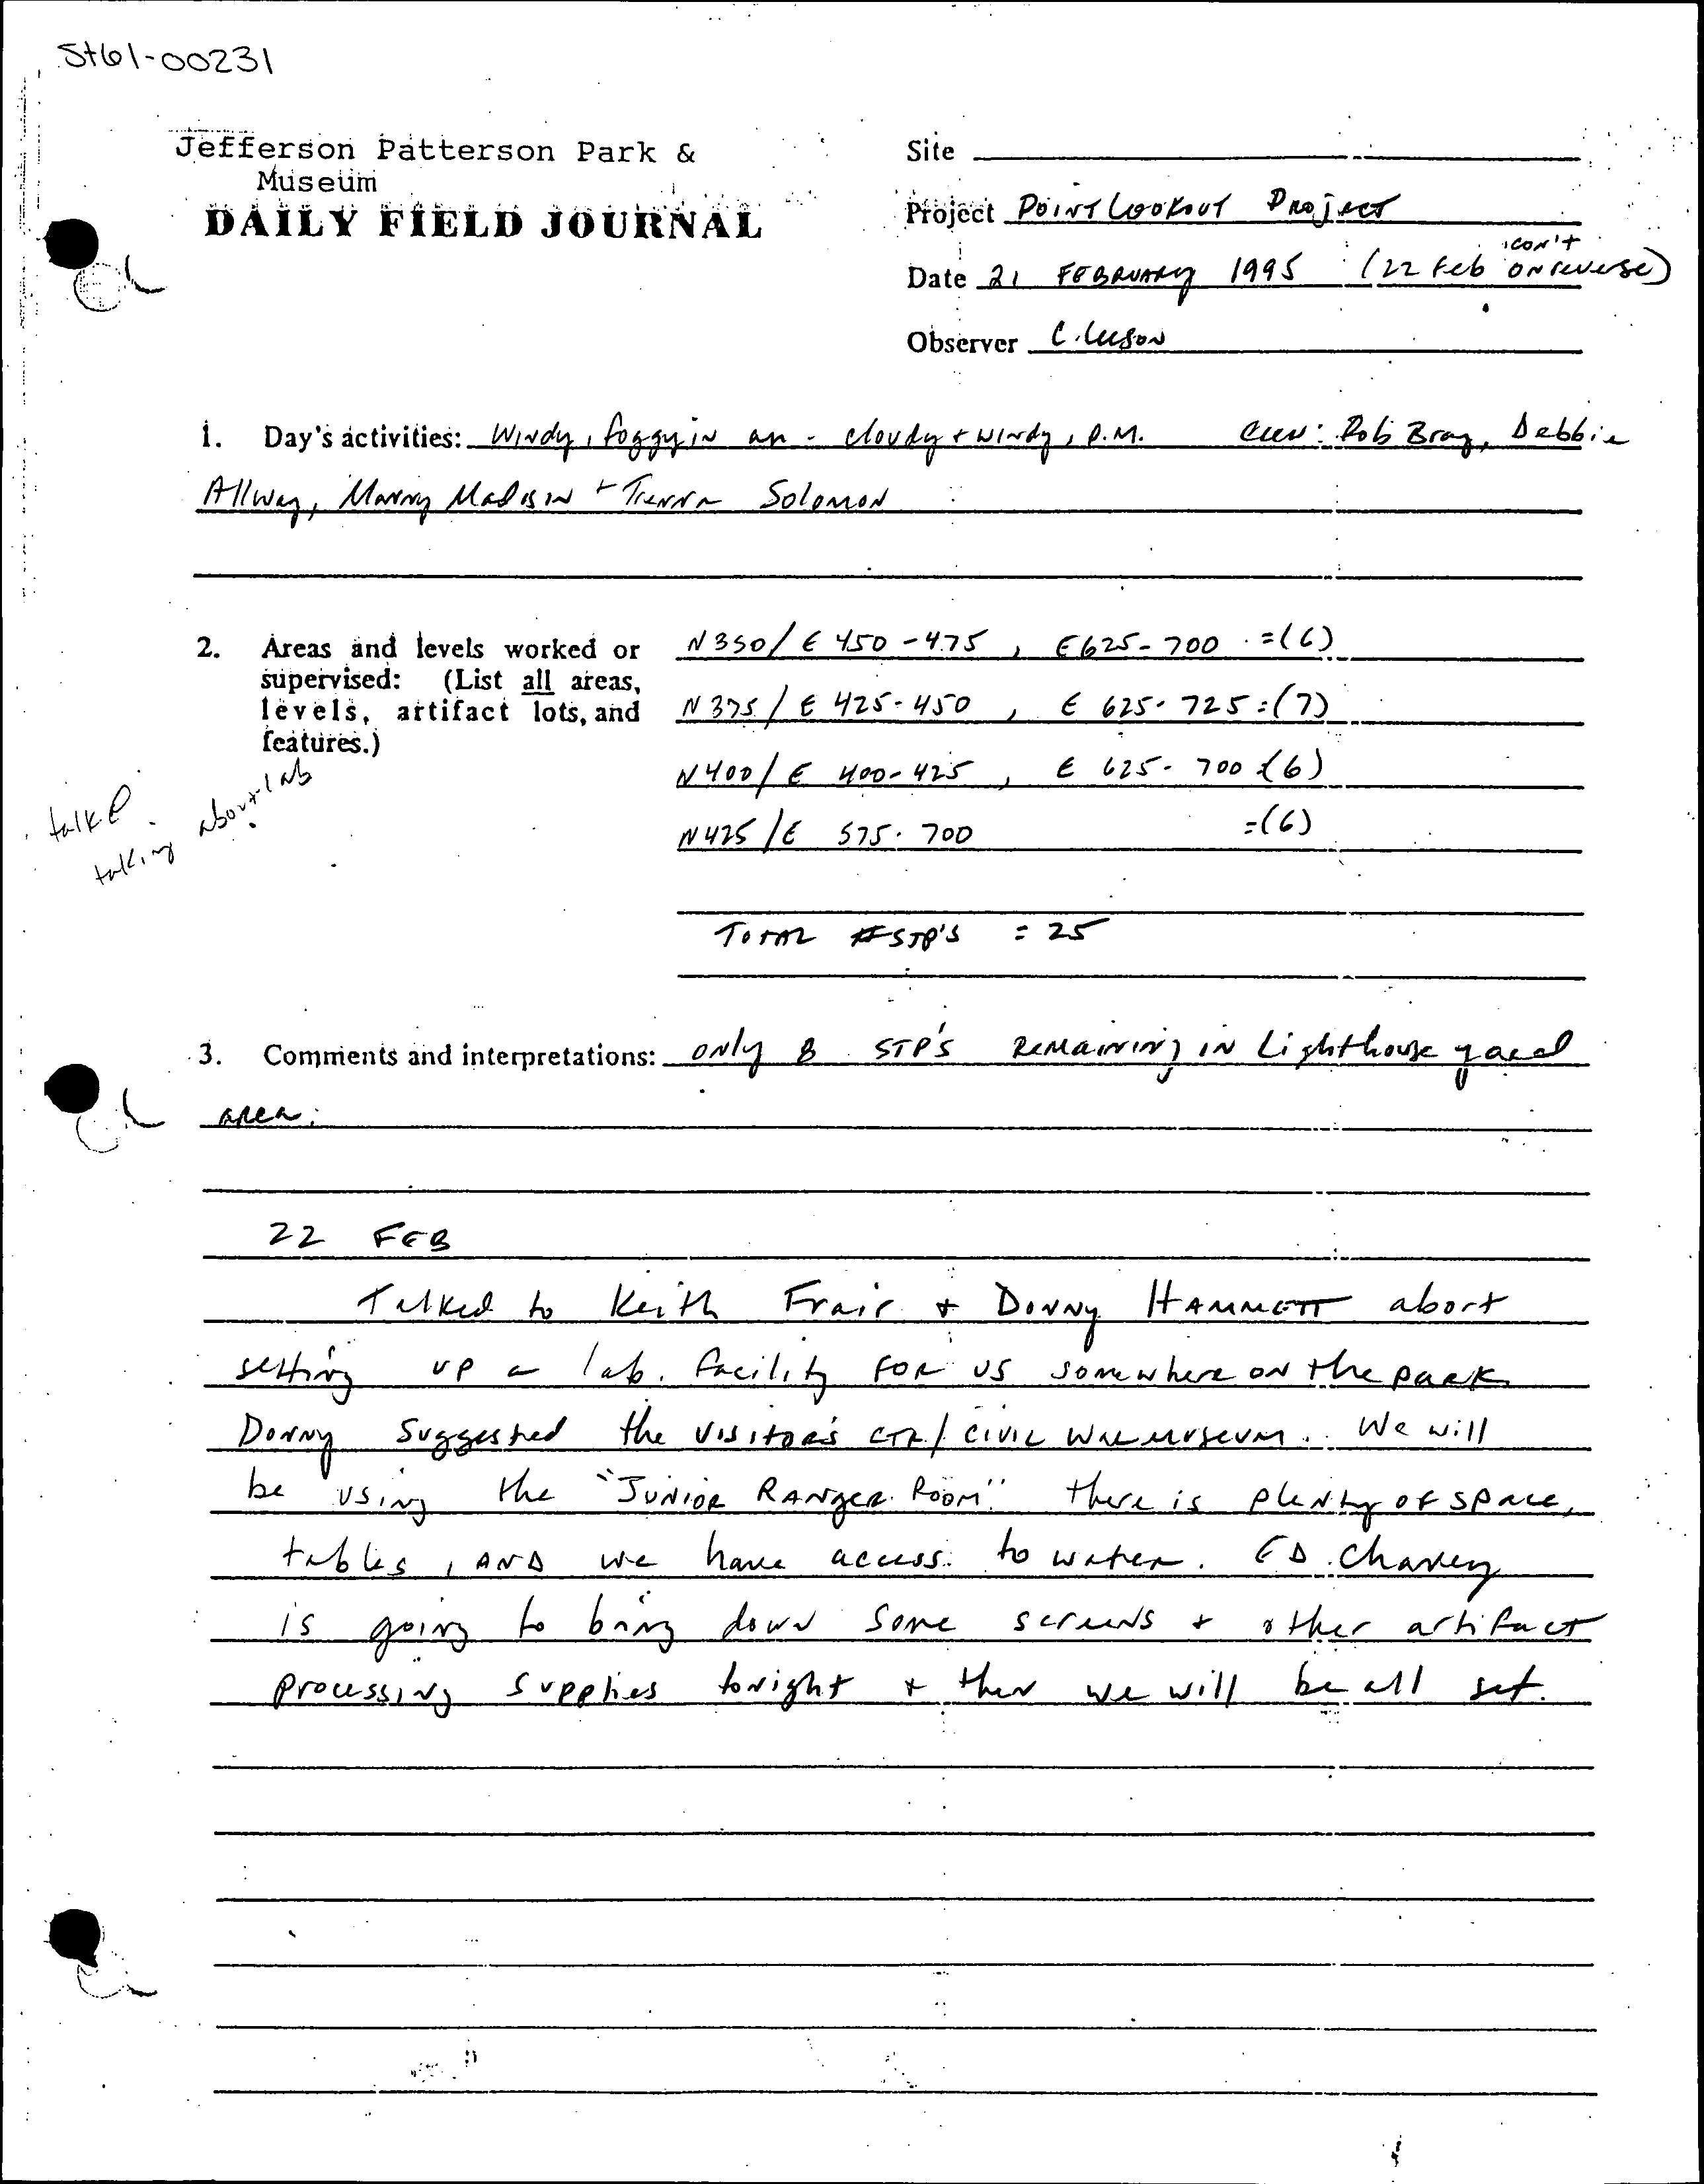 St61-00231
Jefferson Patterson Park &
Museum
DAILY FIELD JOURNAL
Site
Project POINT LOOKOUT PROJECT
Date 21 FEBRUARY 1995 (22 Feb con't on reverse)
Observer C. Leeson
1. Day's activities: Windy, foggy in am - cloudy + windy, P.M. Crew: Rob Bray, Debbie
Allway, Manny Madison + Tienna Solomon
2. Areas and levels worked or
supervised: (List all areas,
levels, artifact lots, and
features.)
N350/E 450-475, E625-700 =(6)
N375/E 425-450, E 625-725=(7)
N400/E 400-425, E 625-700=(6)
N425/E 575-700 =(6)
TOTAL # STP'S = 25
talk
talking about lab
3. Comments and interpretations: only 8 STP's REMAINING IN Lighthouse yard
area.
22 FEB
Talked to Keith Frair + DONNY HAMMETT about
setting up a lab. facility FOR US somewhere on the park
Donny suggested the VISITOR'S CTR/CIVIL WAR MUSEUM. We will
be using the "JUNIOR RANGER ROOM" there is plenty of space,
tables, AND we have access to water. ED Chaney
is going to bring down some screens + other artifact
processing supplies tonight + then we will be all set.